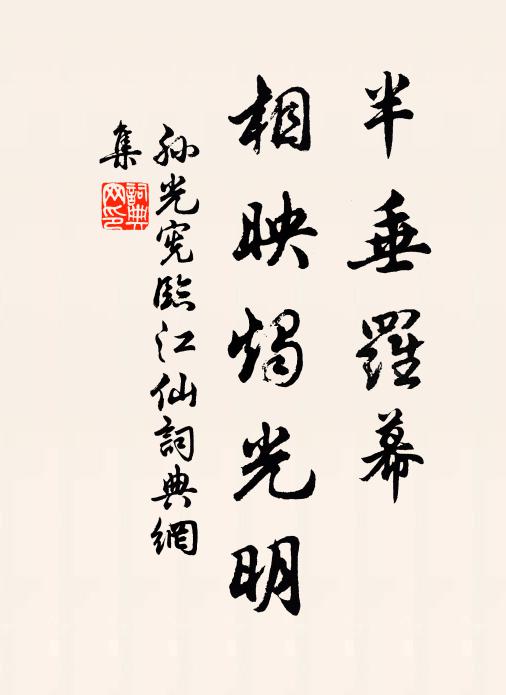 半垂羅幕
相映燭光明
孫光憲臨江仙詞典網
集
詞典網印